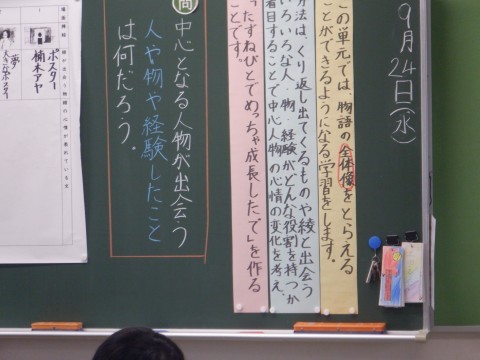 9月24日(水)
この単元では、物語の全体像をとらえる
ことができるようになる学習をします。
方法は、くり返し出てくるものや綾と出会う
いろいろな人・物・経験がどんな役割を持つか
着目することで中心人物の心情の変化を考え、
ったずねびとでめっちゃ成長したで」を作る
ことです。
問
中心となる人物が出会う
人や物や経験したこと
は何だろう。
ポスター
楠木アヤ